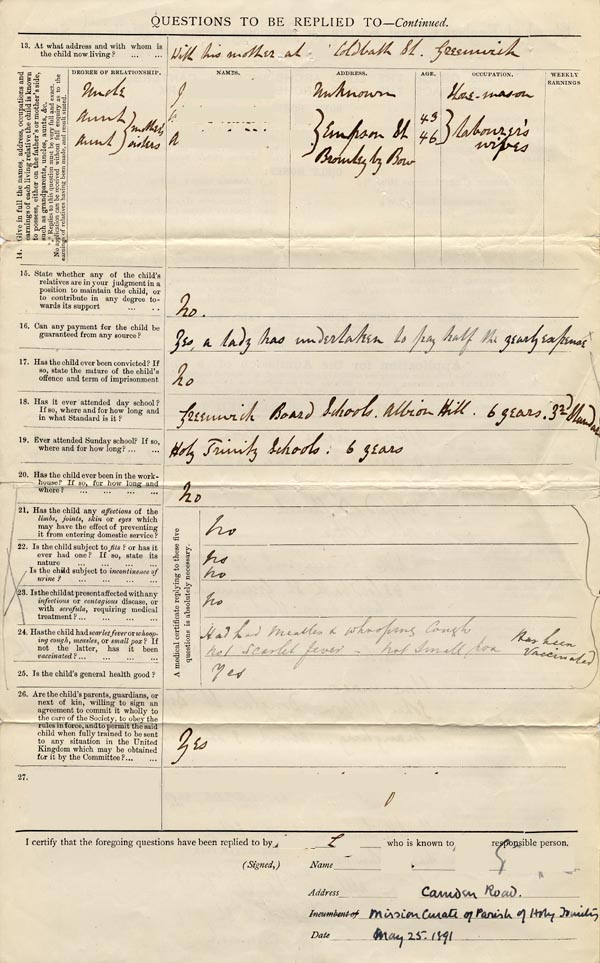 QUESTIONS TO BE REPLIED TO—Continued.
13. At what address and with whom is the child now living? ... ... With his mother at Coldbath St. Greenwich
14. Give in full the names, address, occupations and earnings of each living relative the child is known to possess, either on the father's or mother's side, such as grandparents, uncles, aunts, &c.
*** Replies to this question must be very full and exact. No application can be received without full enquiry as to the earnings of relatives having been made, and result stated.
DEGREE OF RELATIONSHIP. NAMES. ADDRESS. AGE. OCCUPATION. WEEKLY EARNINGS
Uncle J Unknown Stone-mason
Aunt } mother's } Empson St 43 } Labourer's
Aunt } sisters A Bromley by Bow 46 wives
15. State whether any of the child's relatives are in your judgment in a position to maintain the child, or to contribute in any degree towards its support ... ... No.
16. Can any payment for the child be guaranteed from any source? Yes, a lady has undertaken to pay half the yearly expense
17. Has the child ever been convicted? If so, state the nature of the child's offence and term of imprisonment No
18. Has it ever attended day school? If so, where and for how long and in what Standard is it? Greenwich Board Schools. Albion Hill. 6 years. 3rd Standard
19. Ever attended Sunday school? If so, where and for how long? ... ... Holy Trinity Schools. 6 years
20. Has the child ever been in the workhouse? If so, for how long and where? ... ... ... ... No
A medical certificate replying to these five questions is absolutely necessary.
21. Has the child any affections of the limbs, joints, skin or eyes which may have the effect of preventing it from entering domestic service? No
22. Is the child subject to fits? or has it ever had one? If so, state its nature ... ... ... ... No
Is the child subject to incontinence of urine? ... ... ... ... No
23. Is the child at present affected with any infectious or contagious disease, or with scrofula, requiring medical treatment? ... ... ... No
24. Has the child had scarlet fever or whooping cough, measles, or small pox? If not the latter, has it been vaccinated? ... ... ... Had had measles & whooping Cough not Scarlet fever - not Small pox Has been vaccinated
25. Is the child's general health good? Yes
26. Are the child's parents, guardians, or next of kin, willing to sign an agreement to commit it wholly to the care of the Society, to obey the rules in force, and to permit the said child when fully trained to be sent to any situation in the United Kingdom which may be obtained for it by the Committee? ... ... Yes
27.
I certify that the foregoing questions have been replied to by who is known to responsible person.
(Signed,) Name
Address Camden Road.
Incumbent of Mission Curate of Parish of Holy Trinity
Date May 25. 1891